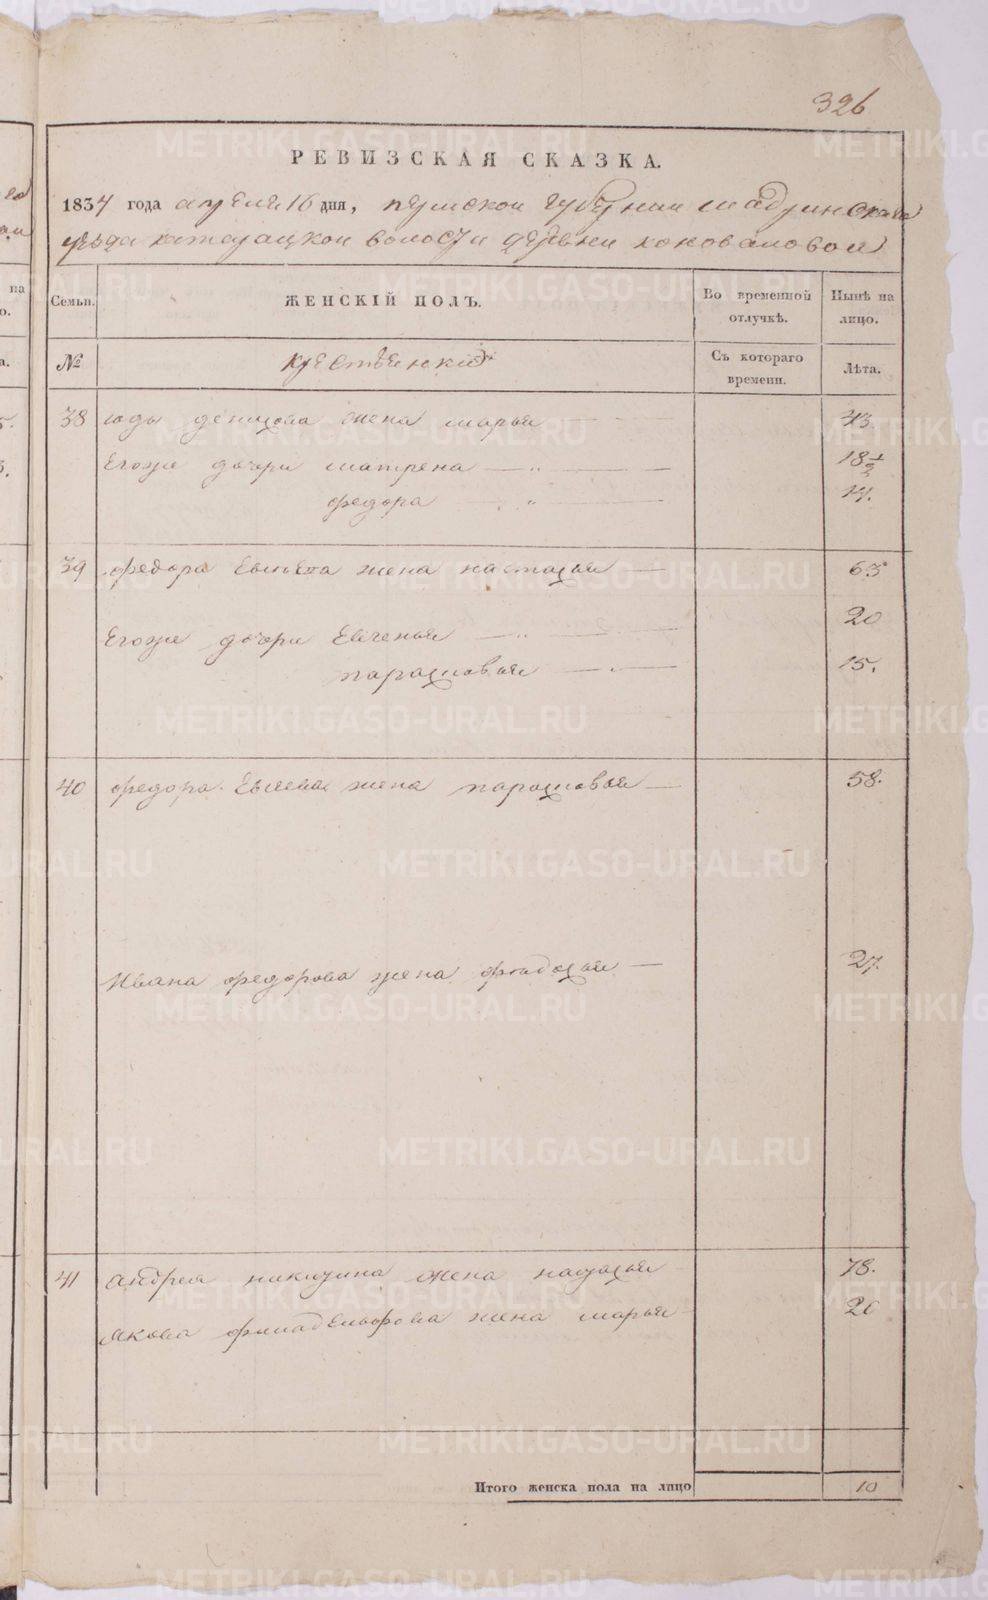 326
РЕВИЗСКАЯ СКАЗКА.
1834 года апреля 16 дня, пермской губернии шадринскаго
уезда катедацкой волости деревни коноваловой
Семьи.
ЖЕНСКІЙ ПОЛЪ.
Во временной отлучкѣ.
Нынѣ на лицо.
№
крестьянский
Съ котораго времени.
Лѣта.
38 юды денисова жена марья 43.
Егоже дочери матрена 18 1/2
федора 14.
39 федора жена настасья 63
Егоже дочери Евгенья 20
парасковья 15.
40 федора жена парасковья 58.
Ивана федорова жена федосья 27.
41 андрея никитина жена настасья 78.
якова филадельфова жена марья 20
Итого женска пола на лицо 10
METRIKI.GASO-URAL.RU